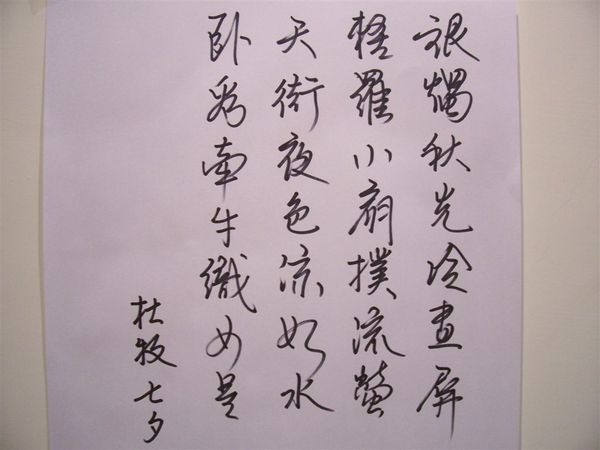 銀燭秋光冷畫屏
輕羅小扇撲流螢
天街夜色涼如水
卧看牽牛織女星
杜牧七夕